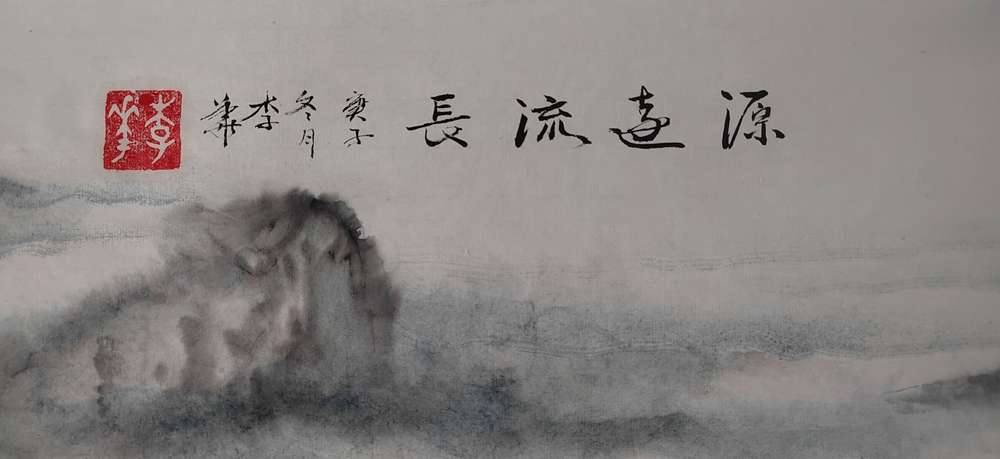 源遠流長
庚子
冬月
李
華
李華